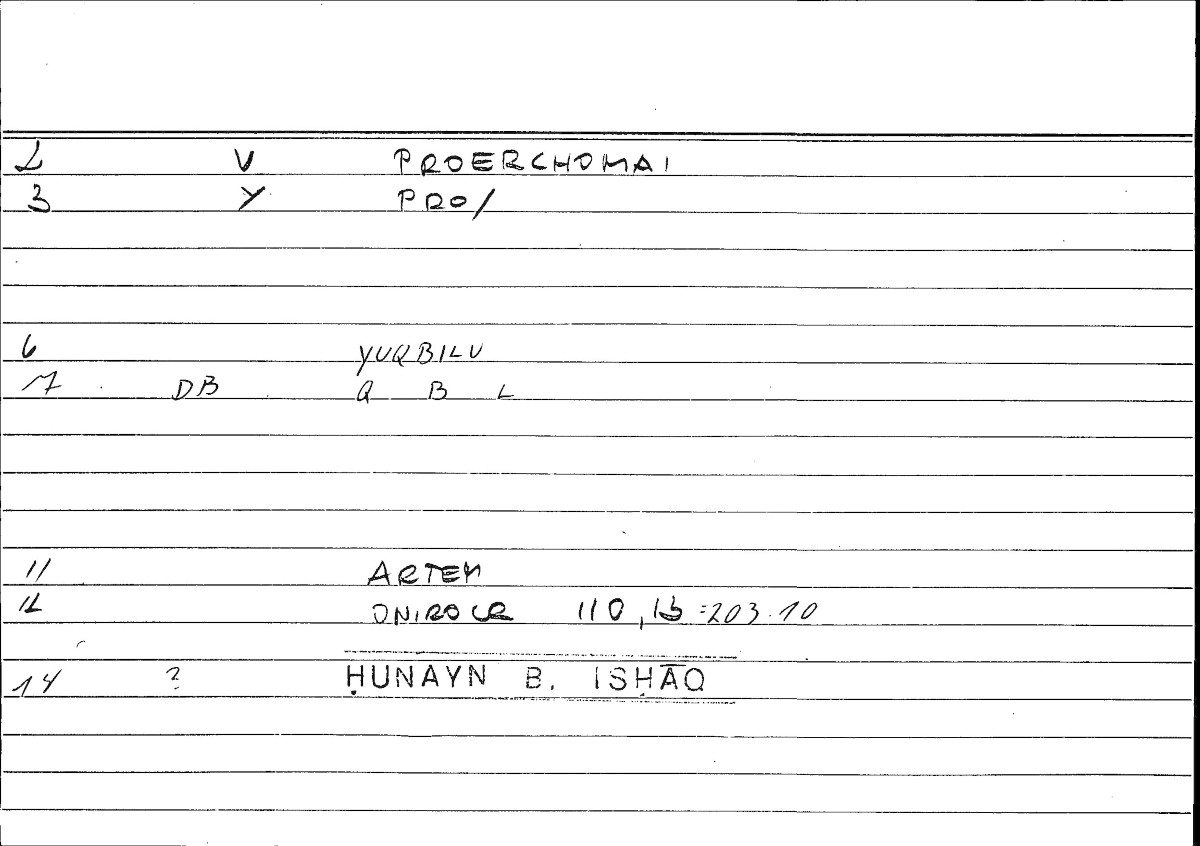 2 V PROERCHOMAI
3 Y PRO/
6 YUQBILU
7 DB Q B L
11 ARTEM
12 ONIROCR 110,13 =203.10
14 ? ḤUNAYN B. ISḤĀQ